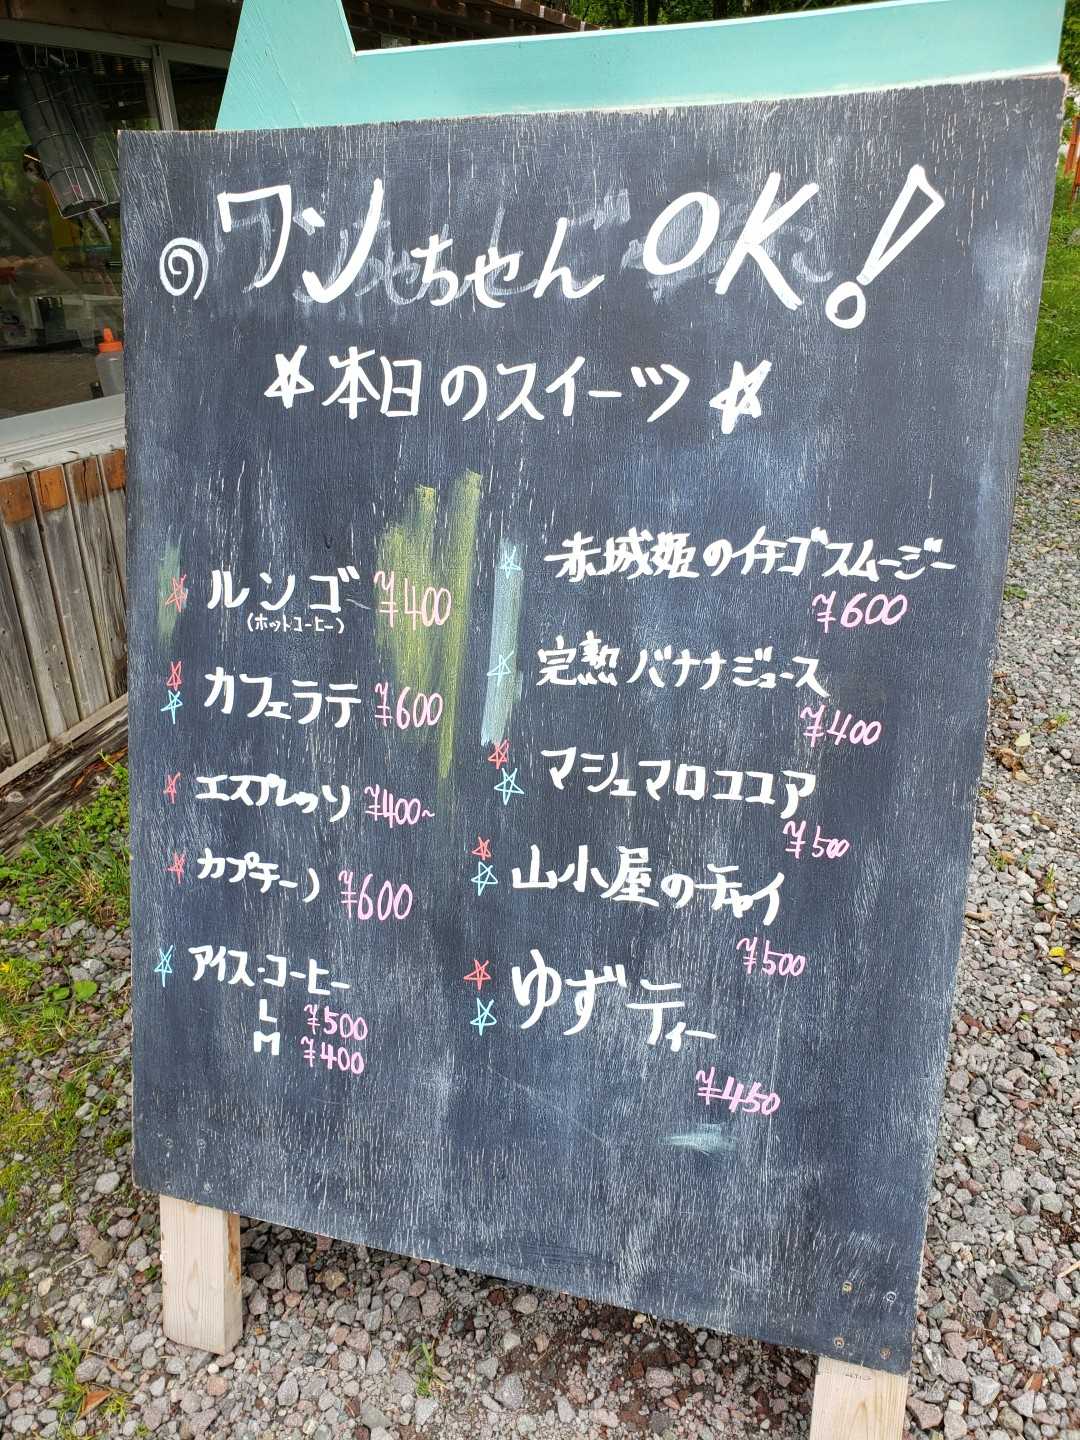 ワンちゃん OK!
☆本日のスイーツ☆
☆ルンゴ ¥400
(ホットコーヒー)
☆☆カフェラテ ¥600
☆エスプレッソ ¥400~
☆カプチーノ ¥600
☆アイス・コーヒー
L ¥500
M ¥400
☆赤城姫のイチゴスムージー
¥600
☆完熟バナナジュース
¥400
☆☆マシュマロココア
¥500
☆☆山小屋のチャイ
¥500
☆☆ゆずティー
¥450